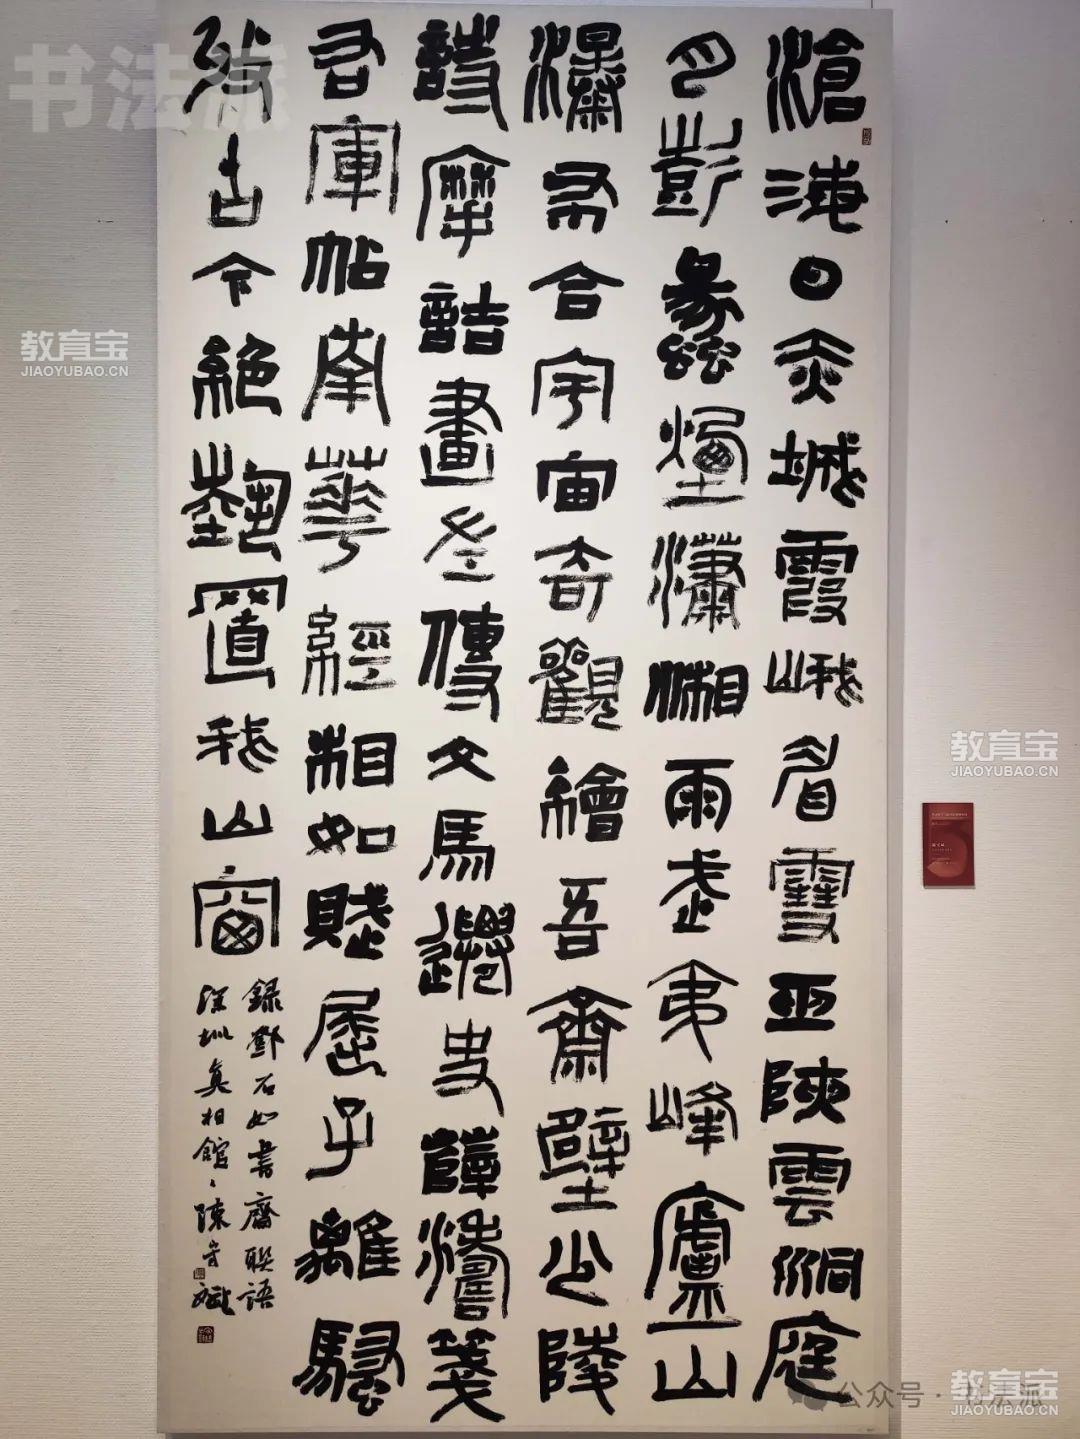 滄海日赤城霞峨眉雪巫陜雲洞庭
月彭蠡煙瀟湘雨武夷峰廬山
瀑布合宇宙奇觀繪吾齋壁少陵
詩摩詰畫左傳文馬遷史薛濤箋
右軍帖南華經相如賦屈子離騷
收古今絕藝置我山窗
錄鄧石如書齋聯語
深圳真相館 陳
书法派
教育宝
JIAOYUBAO.CN
教育宝
JIAOYUBAO.CN
教育宝
JIAOYUBAO.CN
公众号·书法派